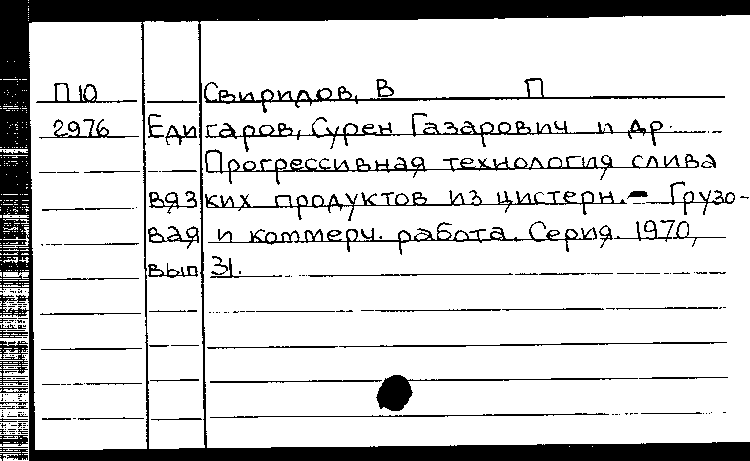 П10 Свиридов, В П
2976 Едигаров, Сурен Газарович и др.
Прогрессивная технология слива
вязких продуктов из цистерн. - Грузо-
вая и коммерч. работа. Серия. 1970,
вып 31.